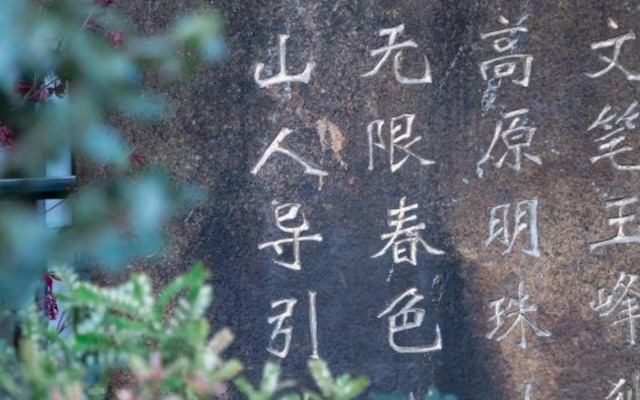 文笔玉峰
高原明珠
无限春色
山人导引